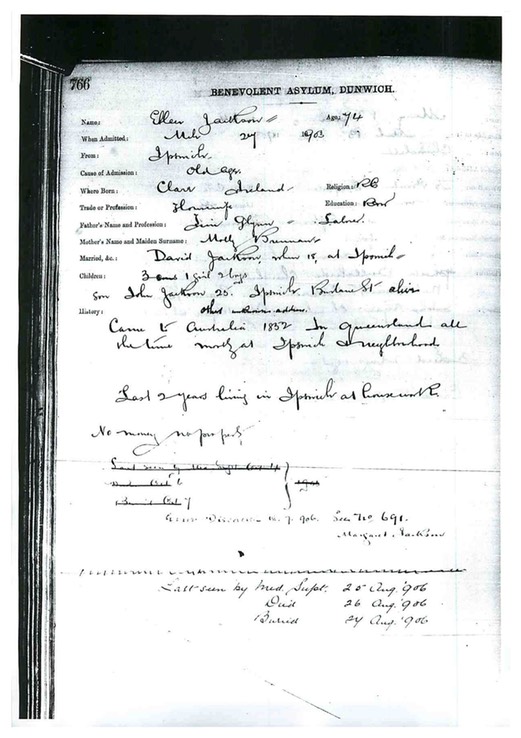 766
BENEVOLENT ASYLUM, DUNWICH.
Name: Ellen Jackson Age: 74
When Admitted: Mch 27 1903
From: Ipswich
Cause of Admission: Old age.
Where Born: Clare Ireland Religion: RC
Trade or Profession: Education:
Father's Name and Profession: Jim Glynn - Labrer
Mother's Name and Maiden Surname: Molly Brennan
Married, &c.: David Jackson, when 18, at Ipswich
Children: 3 1 girl 2 boys
Son John Jackson 25. Ipswich Brisbane St alive
History: other unknown address.
Came to Australia 1852 In Queensland all
the time mostly at Ipswich & neighborhood
Last 2 years living in Ipswich at housework.
No money no property
Last seen by Med Supt Oct 4
Died Oct 6
Buried Oct 7
Error Discovered 16. 7. 906. See No 691.
Margaret Jackson
Last seen by Med. Supt. 25 Aug. '906
Died 26 Aug. '906
Buried 27 Aug. '906